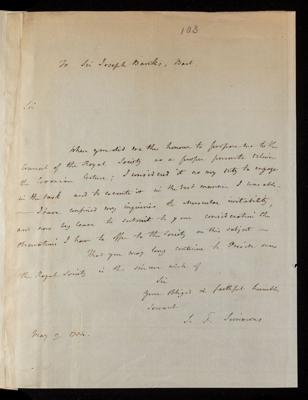 103
To Sir Joseph Banks, Bart
Sir
When you did me the honour to propose me to the
Council of the Royal Society as a proper person to deliver
the Croonian Lecture; I considered it as my duty to engage
in the task and to execute it in the best manner I was able.
— I have confined my inquiries to Muscular irritability,
and now beg leave to submit to your consideration the
observations I have to offer to the Society on this subject —
That you may long continue to Preside over
the Royal Society is the sincere wish of
Sir
Your obliged & faithful humble
Servant
S. F. Simmons
May 9